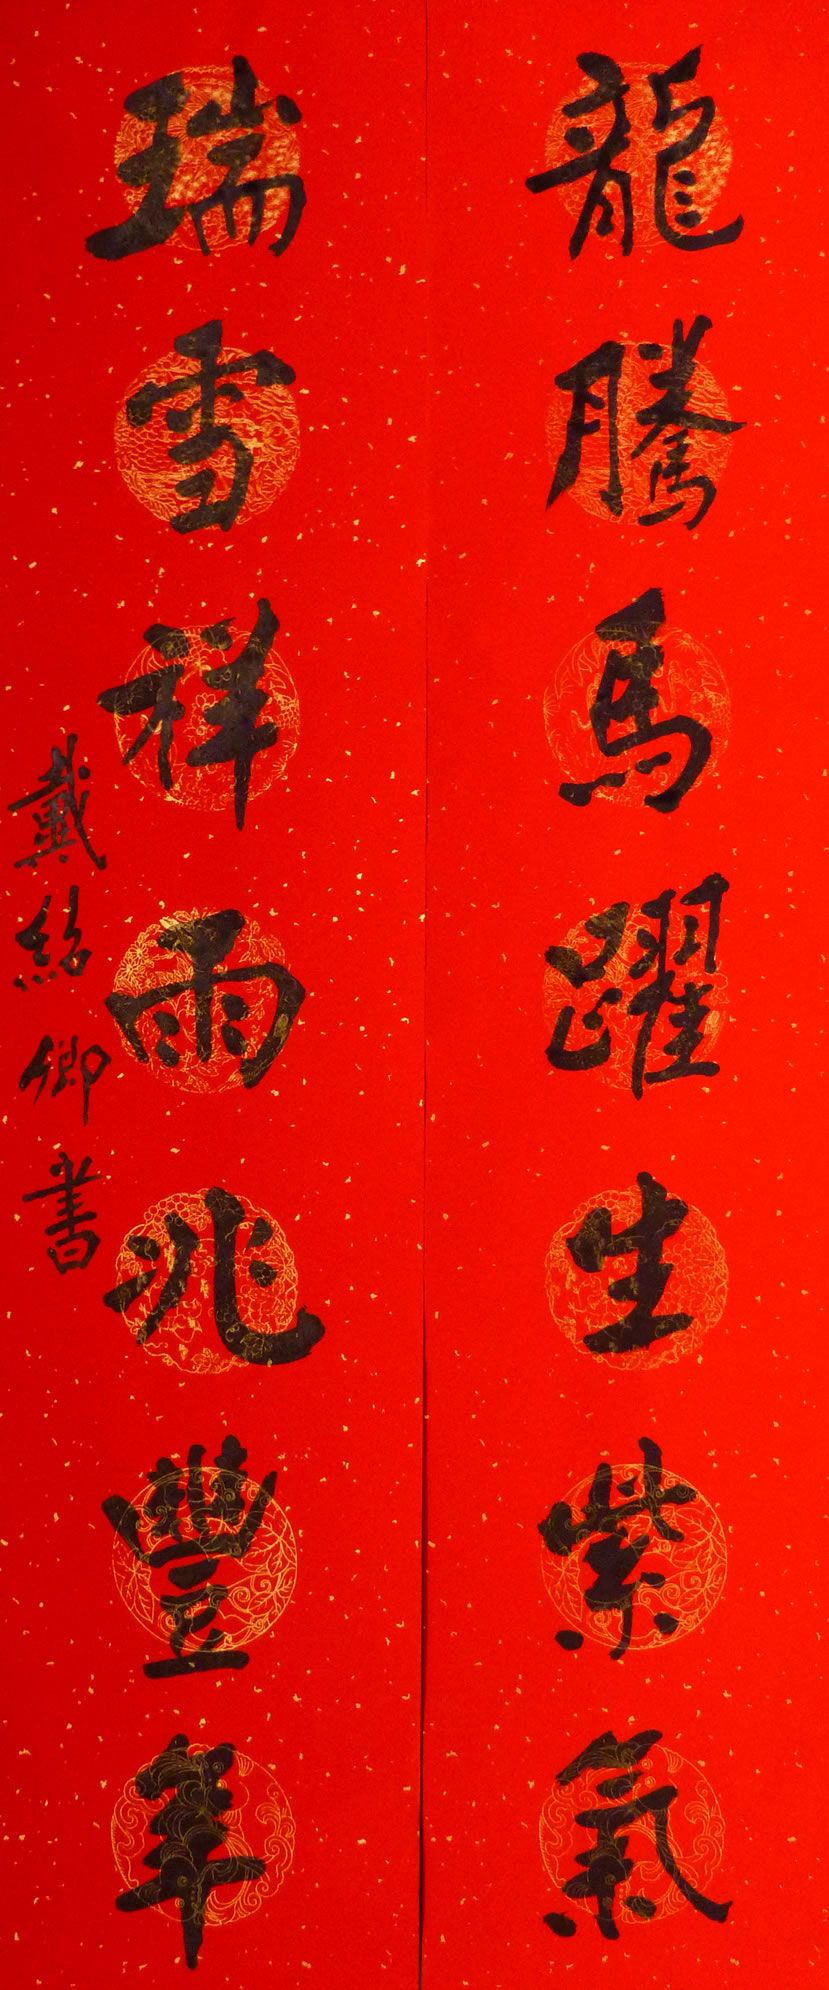 龍騰馬躍生紫氣
瑞雪祥雨兆豐年
戴紹卿書